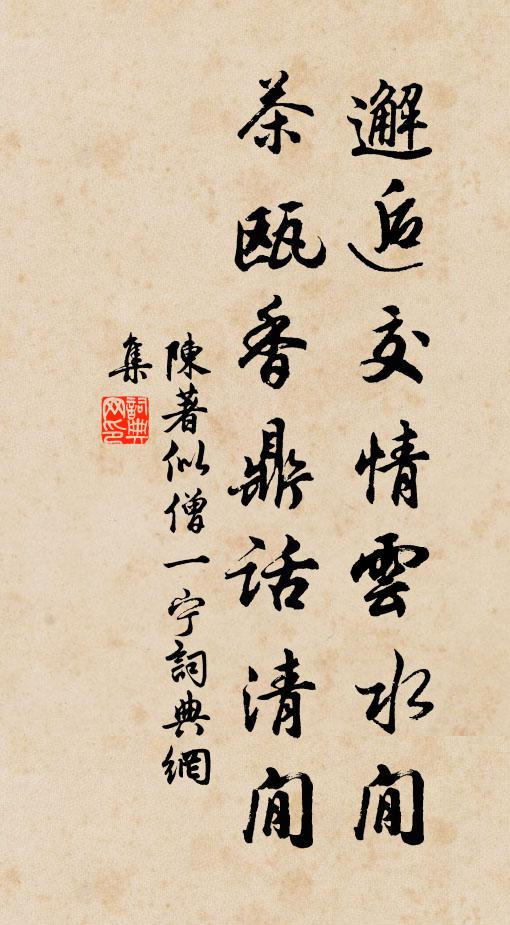 邂逅交情雲水間
茶甌香鼎話清間
陳著似僧一宁詞典網
集
詞典
网印